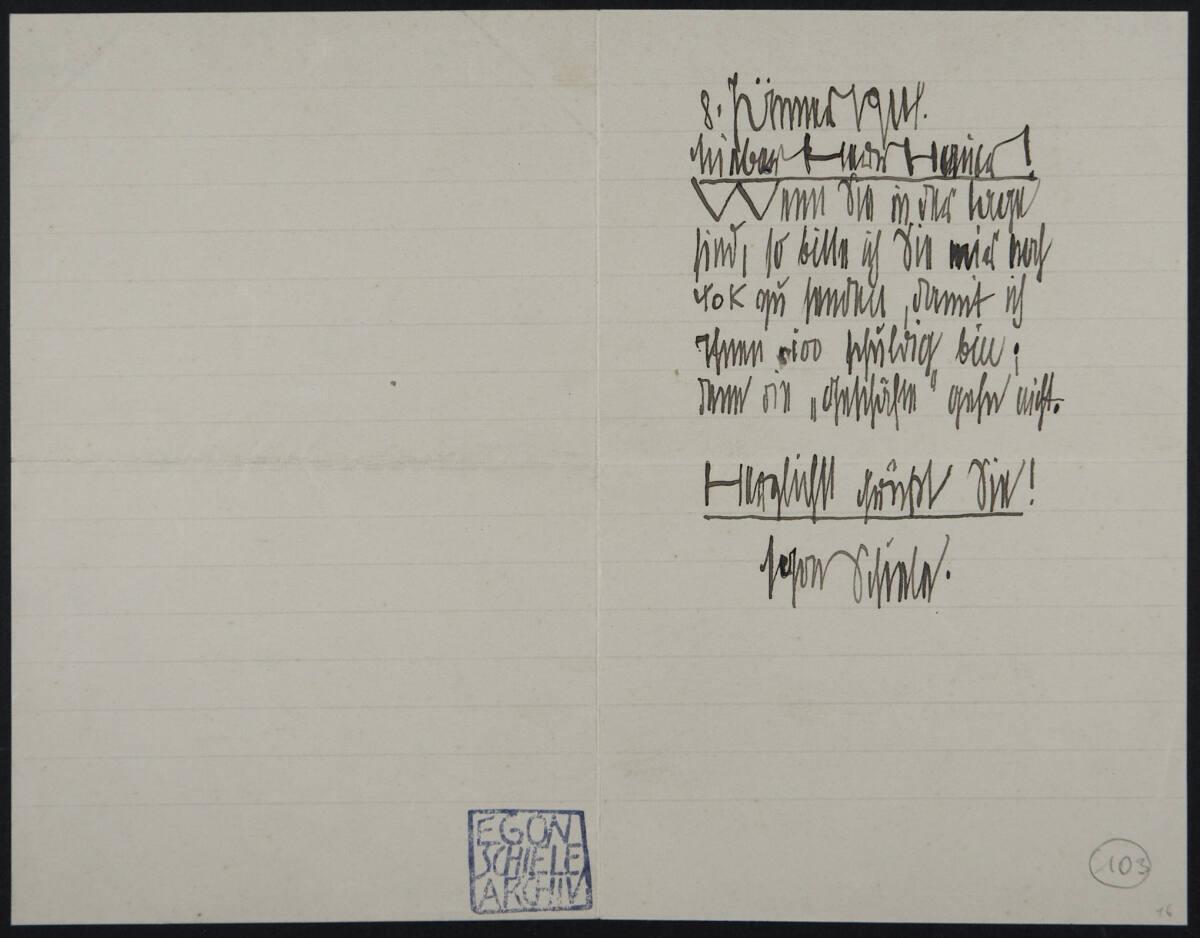 8. Jänner 1914.
Lieber Herr Hauer!
Wenn Sie in der Lage
sind, so bitte ich Sie mir noch
40 K zu senden, damit ich
Ihnen 100 schuldig bin;
denn die „Geschäfte" gehn nicht.
Herzlichst grüßt Sie!
Egon Schiele.
EGON
SCHIELE
ARCHIV
103
16